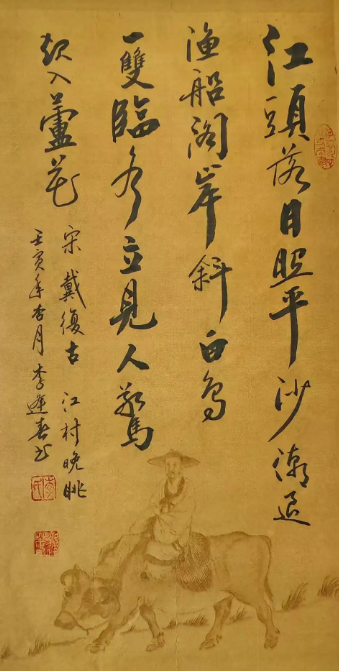 江頭落日照平沙潮退
漁船閣岸斜白鳥
一雙臨水立見人驚
起入蘆花
宋 戴復古 江村晚眺
壬寅年杏月李春书